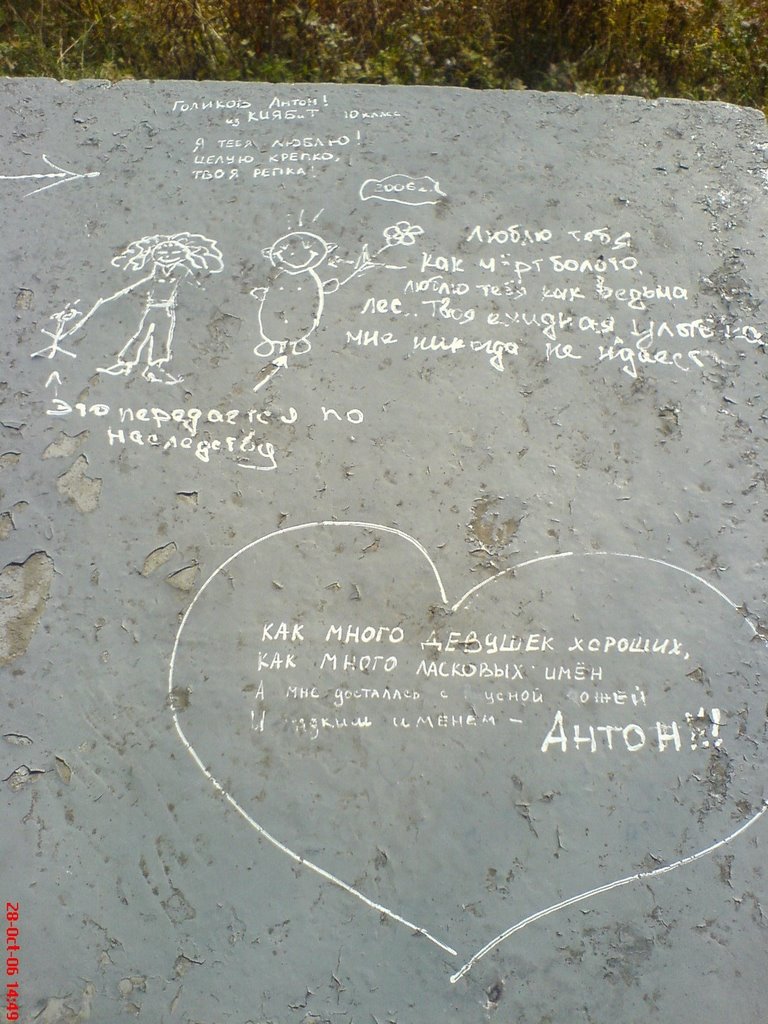 Голиков Антон!
из 10 класс
Я ТЕБЯ ЛЮБЛЮ!
ЦЕЛУЮ КРЕПКО,
ТВОЯ РЕПКА!
2006г.
Люблю тебя
как чёрт болото,
люблю тебя как ведьма
лес.. Твоя ехидная улыбка
мне никогда не
Это передается по
наследству
КАК МНОГО ДЕВУШЕК ХОРОШИХ,
КАК МНОГО ЛАСКОВЫХ ИМЁН
А мне досталась с
И именем - АНТОН!!!
28-Oct-06 14:49